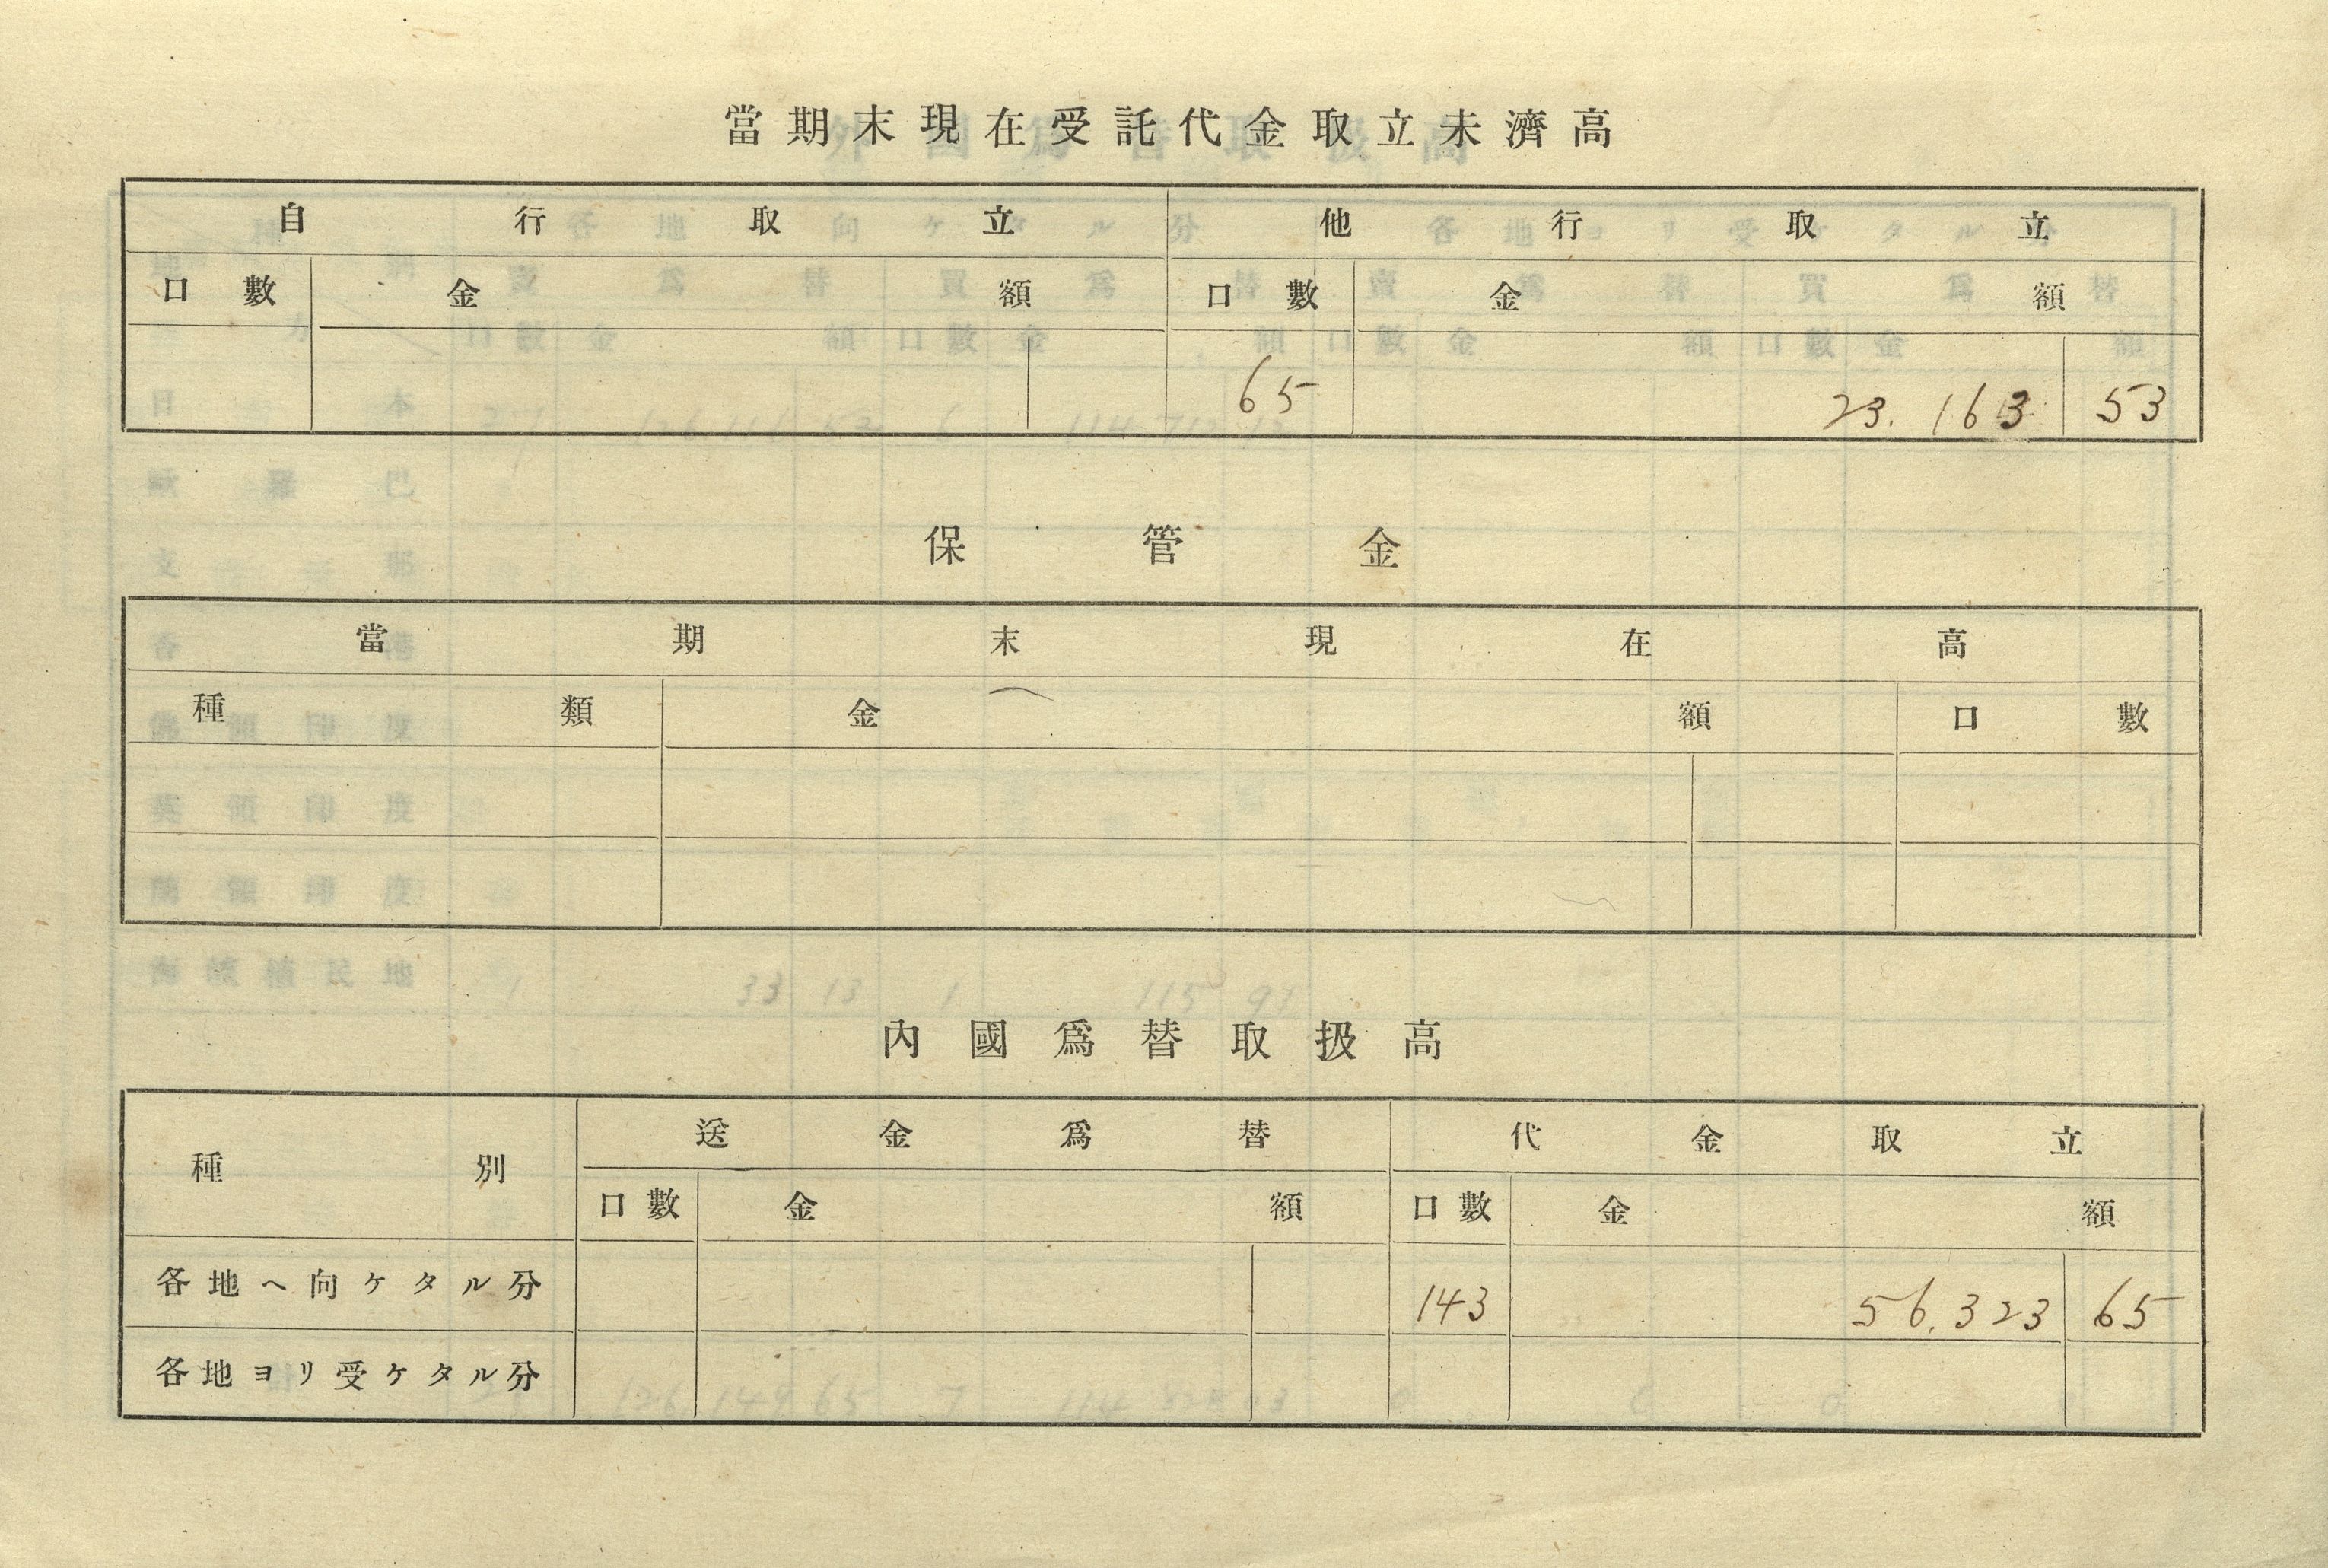 當期末現在受託代金取立未濟高
自行取立 他行取立
口數 金額 口數 金額
65 23.163 53
保管金
當期末現在高
種類 金額 口數
內國爲替取扱高
種別 送金爲替 代金取立
口數 金額 口數 金額
各地ヘ向ケタル分 143 56.323 65
各地ヨリ受ケタル分